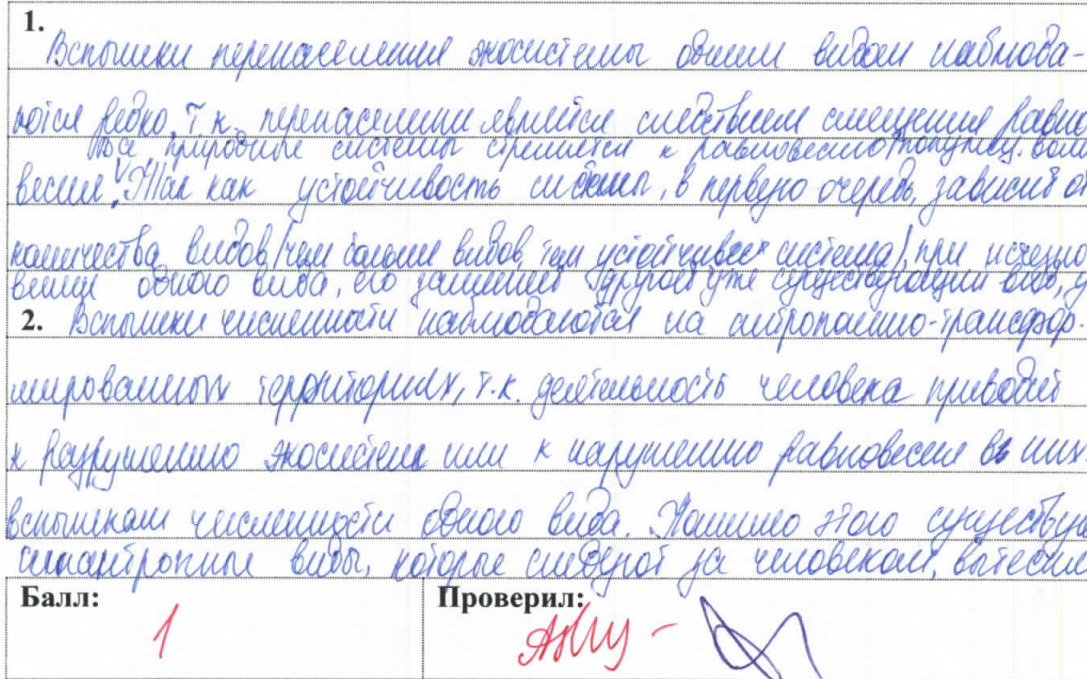 1.
Вспышки перенаселения экосистемы одним видом наблюда-
ются редко, т.к. перенаселение является следствием смещения равно-
Все природные системы стремятся к равновесию
весия. V Так как устойчивость системы, в первую очередь, зависит от
количества видов (чем больше видов, тем устойчивее система), при исчезно-
вении одного вида, его заменит другой уже существующий вид,
2. Вспышки численности наблюдаются на антропогенно-трансфор-
мированных территориях, т.к. деятельность человека приводит
к разрушению экосистем или к нарушению равновесия в них.
вспышкам численности одного вида. Помимо этого существую
синантропные виды, которые следуют за человеком, вытесня
Балл:
1
Проверил: